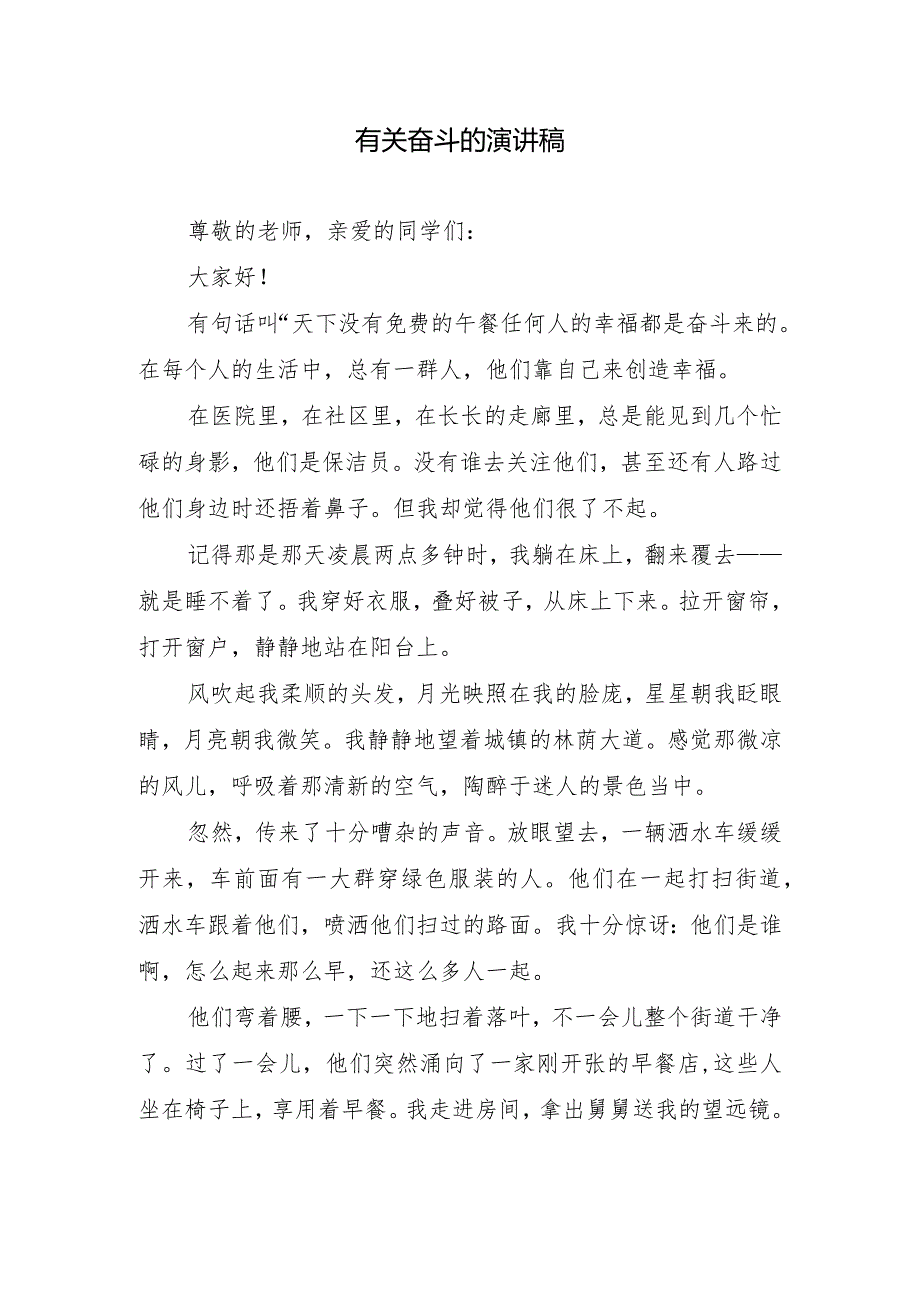 有关奋斗的演讲稿
尊敬的老师，亲爱的同学们：
大家好！
有句话叫“天下没有免费的午餐任何人的幸福都是奋斗来的。
在每个人的生活中，总有一群人，他们靠自己来创造幸福。
在医院里，在社区里，在长长的走廊里，总是能见到几个忙
碌的身影，他们是保洁员。没有谁去关注他们，甚至还有人路过
他们身边时还捂着鼻子。但我却觉得他们很了不起。
记得那是那天凌晨两点多钟时，我躺在床上，翻来覆去——
就是睡不着了。我穿好衣服，叠好被子，从床上下来。拉开窗帘，
打开窗户，静静地站在阳台上。
风吹起我柔顺的头发，月光映照在我的脸庞，星星朝我眨眼
睛，月亮朝我微笑。我静静地望着城镇的林荫大道。感觉那微凉
的风儿，呼吸着那清新的空气，陶醉于迷人的景色当中。
忽然，传来了十分嘈杂的声音。放眼望去，一辆洒水车缓缓
开来，车前面有一大群穿绿色服装的人。他们在一起打扫街道，
洒水车跟着他们，喷洒他们扫过的路面。我十分惊讶：他们是谁
啊，怎么起来那么早，还这么多人一起。
他们弯着腰，一下一下地扫着落叶，不一会儿整个街道干净
了。过了一会儿，他们突然涌向了一家刚开张的早餐店,这些人
坐在椅子上，享用着早餐。我走进房间，拿出舅舅送我的望远镜。